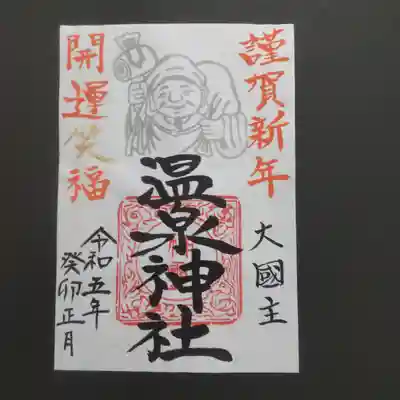 謹賀新年
大國主
温泉神社
開運笑福
令和五年
癸卯正月